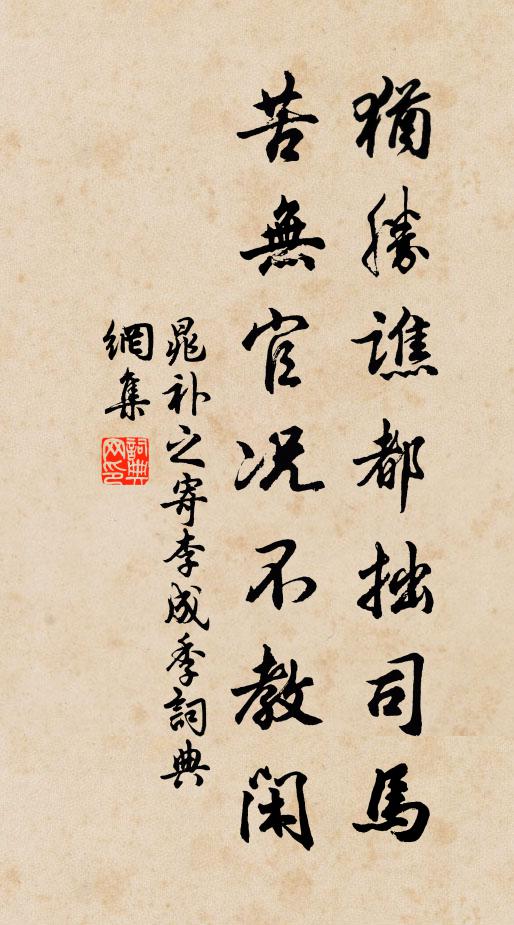 猶勝譙都拙司馬
苦無官况不教閑
晁补之寄李成季詞典
網集
詞典网印